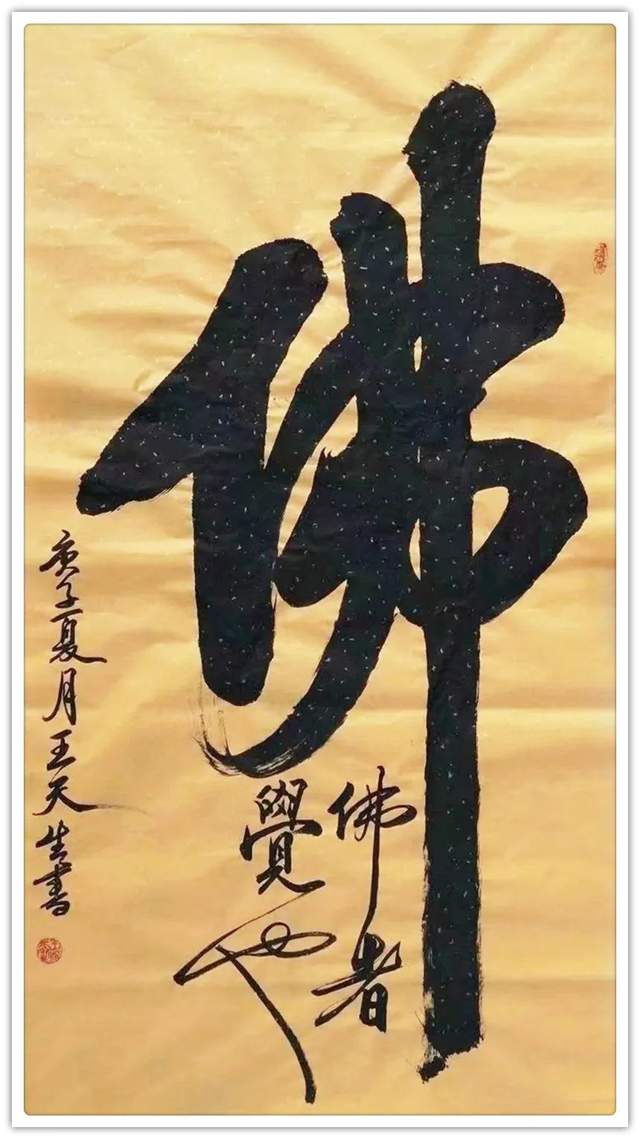 佛
佛者
覺也
庚子夏月王天生書